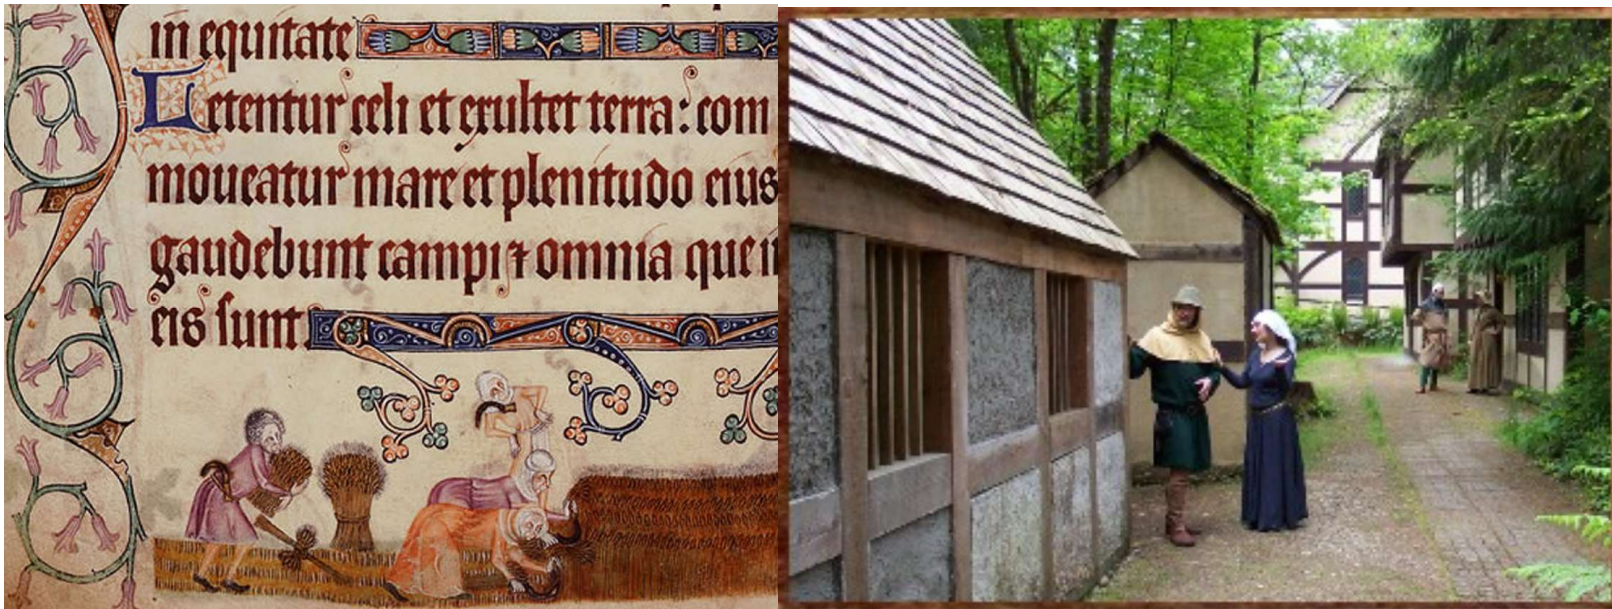 in equitate
Letentur celi et exultet terra: com
moueatur mare et plenitudo eius
gaudebunt campi ⁊ omnia que i
eis sunt.